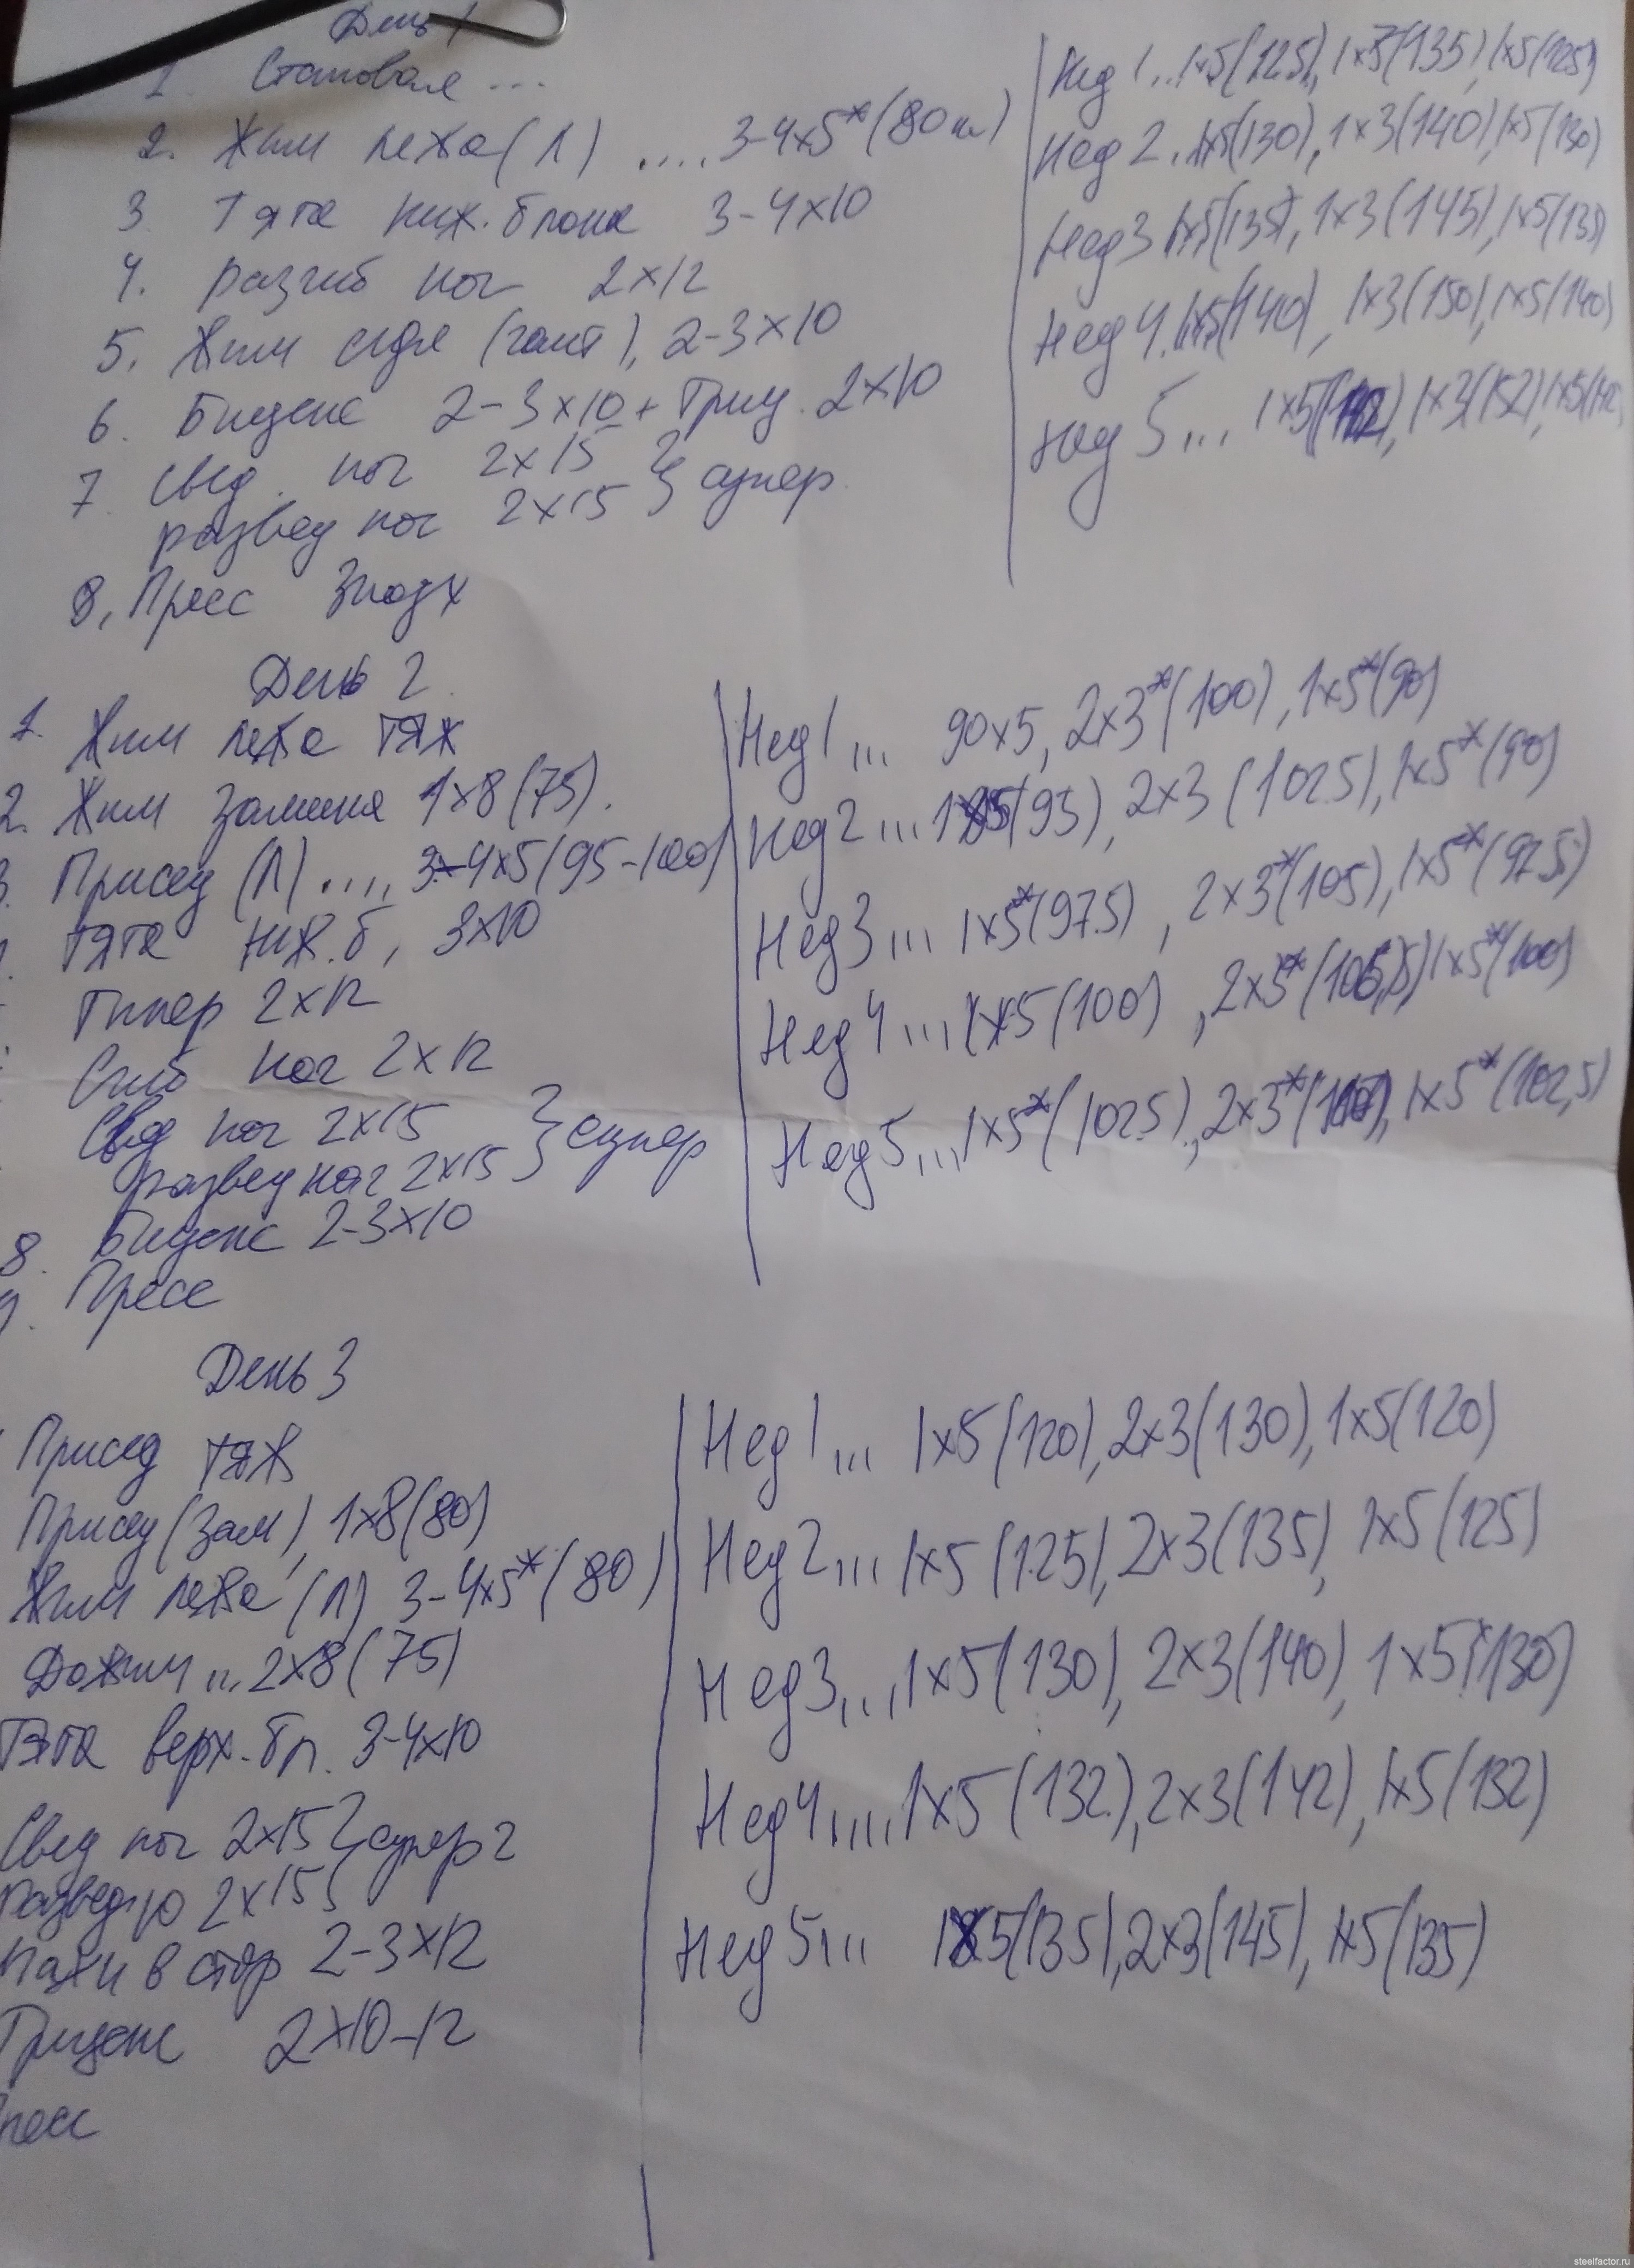 День 1
1. Становая ...
2. Жим лежа (Л) .... 3-4x5* (80 кг)
3. Тяга ниж. блока 3-4x10
4. разгиб ног 2x12
5. Жим сидя (гант), 2-3x10
6. Бицепс 2-3x10 + Триц. 2x10
7. Свед. ног 2x15 } супер
развед ног 2x15
8. Пресс 3подх
Нед 1... 1x5(125), (135), 1x5(125)
Нед 2. 1x5(130), 1x3(140), 1x5(130)
Нед 3 1x5(135), 1x3(145), 1x5(135)
Нед 4. 1x5(140), 1x3(150), 1x5(140)
Нед 5... 1x5, 1x3(152), 1x5(142
День 2
1. Жим лежа тяж
2. Жим замина 1x8(75).
3. Присед (Л) .... 3-4x5(95-100)
Тяга ниж.б, 3x10
Гипер 2x12
Сгиб ног 2x12
Свед ног 2x15 } супер
развед ног 2x15
8. Бицепс 2-3x10
9. Пресс
Нед 1 ... 90x5, 2x3*(100), 1x5*(90)
Нед 2 ... (95), 2x3 (102.5), 1x5*(90)
Нед 3 ... 1x5*(97.5), 2x3*(105), 1x5*(97.5)
Нед 4 ... 1x5(100), 2x3* 1x5*(100)
Нед 5 ... 1x5*(102.5), 2x3*, 1x5*(102,5)
День 3
Присед тяж
Присед (зам), 1x8(80)
Жим лежа (Л) 3-4x5*(80)
Дожим ... 2x8(75)
Тяга верх. бл. 3-4x10
Свед ног 2x15 } супер 2
2x15
Махи в стор 2-3x12
Трицепс 2x10-12
Пресс
Нед 1 ... 1x5(120), 2x3(130), 1x5(120)
Нед 2 ... 1x5(125), 2x3(135), 1x5(125)
Нед 3 ... 1x5(130), 2x3(140), 1x5(130)
Нед 4 .... 1x5(132), 2x3(142), 1x5(132)
Нед 5 ... 1x5(135), 2x3(145), 1x5(135)
steelfactor.ru